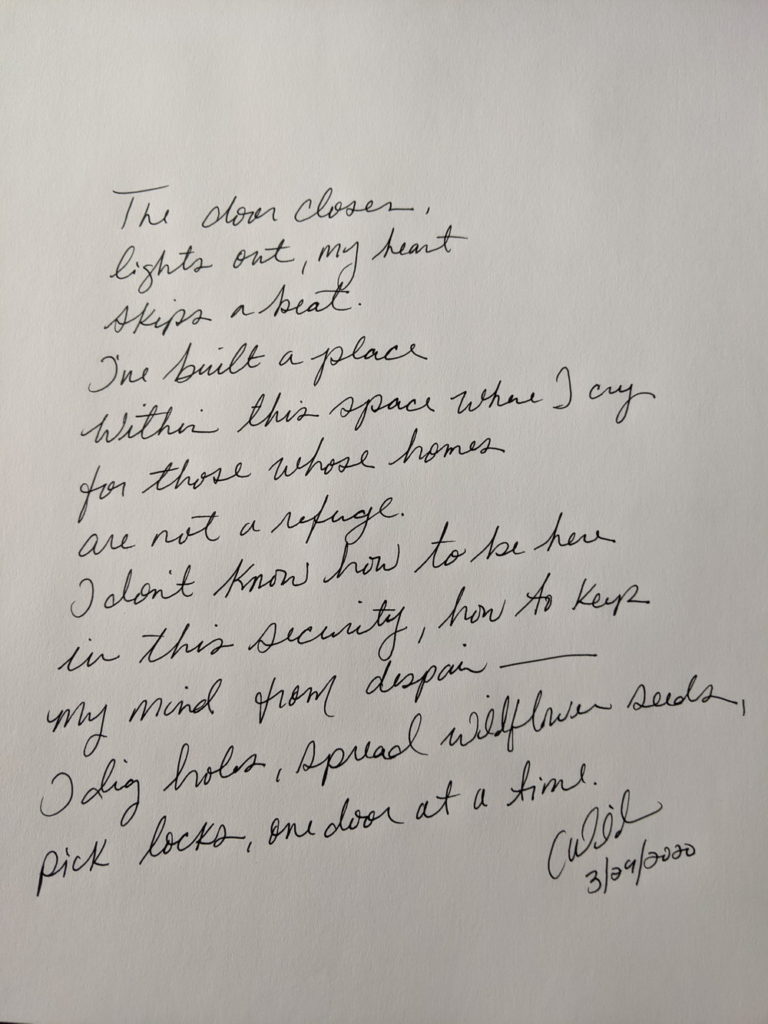 The door closes,
lights out, my heart
skips a beat.
I've built a place
Within this space where I cry
for those whose homes
are not a refuge.
I don't know how to be here
in this security, how to keep
my mind from despair —
I dig holes, spread wildflower seeds,
pick locks, one door at a time.
3/29/2020